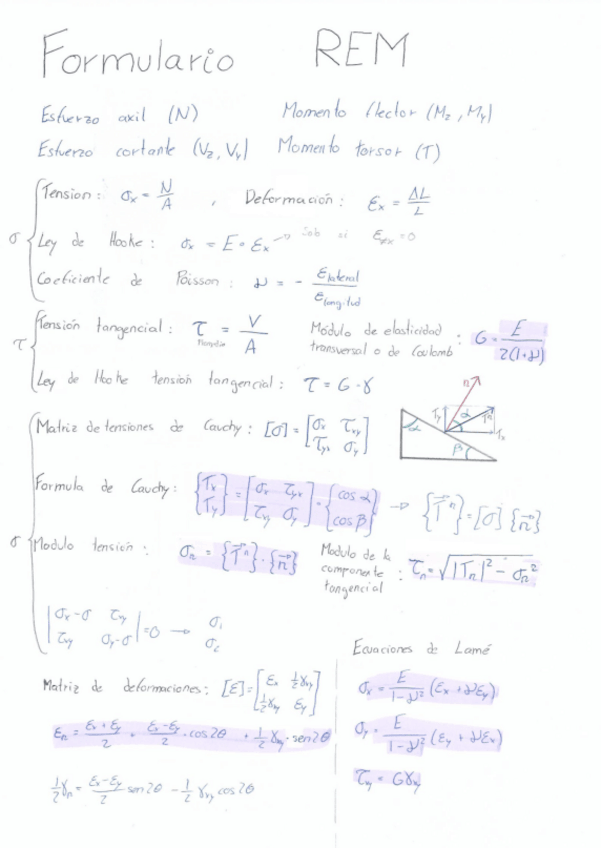 Formulario REM
Esfuerzo axil (N) Momento flector (Mz, My)
Esfuerzo cortante (Vz, Vy) Momento torsor (T)
σ { Tension: σx = N/A , Deformación: εx = ΔL/L
Ley de Hooke: σx = E · εx → Solo si ε≠x = 0
Coeficiente de Poisson: ν = - εlateral/εlongitud
τ { Tensión tangencial: τ = V/A Módulo de elasticidad transversal o de Coulomb: G = E/2(1+ν)
Ley de Hooke tensión tangencial: τ = G · γ
σ { Matriz de tensiones de Cauchy: [σ] = [σx τxy; τyx σy]
n Ty α Tn Tx α β
Formula de Cauchy: {Tx; Ty} = [σx τyx; τxy σy] · {cos α; cos β} → {T⃗ⁿ} = [σ] {n⃗}
Modulo tensión: σn = {T⃗ⁿ} · {n⃗} Modulo de la componente tangencial: τn = √|Tn|² - σn²
|σx-σ τxy; τxy σy-σ| = 0 → σ1 σ2
Ecuaciones de Lamé
Matriz de deformaciones: [ε] = [εx ½γxy; ½γxy εy]
σx = E/1-ν² (εx + νεy)
εn = εx + εy/2 + εx - εy/2 · cos 2θ + ½ γxy · sen 2θ
σy = E/1-ν² (εy + νεx)
τxy = Gγxy
½γn = εx - εy/2 sen 2θ - ½ γxy cos 2θ